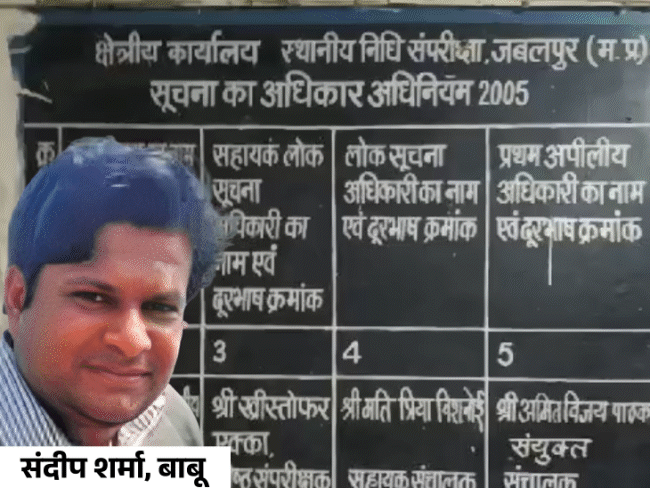 क्षेत्रीय कार्यालय स्थानीय निधि संपरीक्षा, जबलपुर (म.प्र)
सूचना का अधिकार अधिनियम 2005
सहायक लोक
सूचना
का
नाम एवं
दूरभाष क्रमांक
लोक सूचना
अधिकारी का नाम
एवं दूरभाष क्रमांक
प्रथम अपीलीय
अधिकारी का नाम
एवं दूरभाष क्रमांक
3
4
5
श्री ख्रीस्तोफर
एक्का,
संपरीक्षक
श्री मति प्रिया विशनोई
सहायक संचालक
श्री अमित विजय पाठक
संयुक्त
संचालक
संदीप शर्मा, बाबू